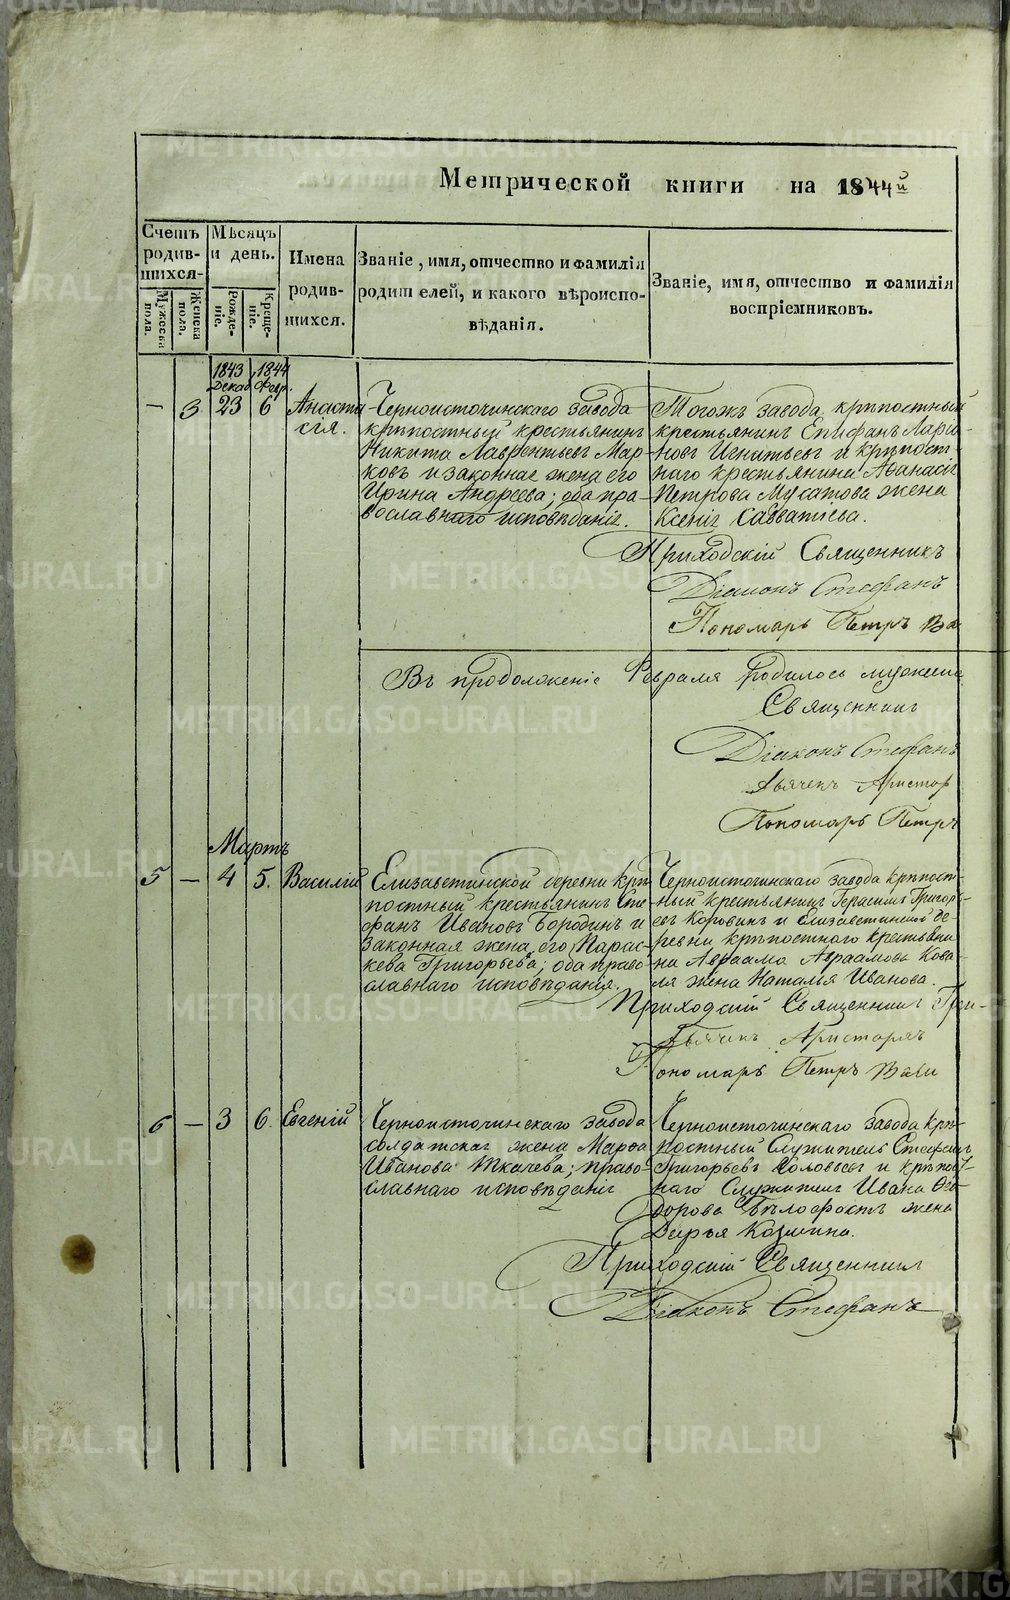 Метрической книги на 1844й
Счетъ родив-шихся.
Мужеска пола.
Женска пола.
Мѣсяцъ и день.
Рожде-ніе.
Креще-ніе.
Имена родив-шихся.
Званіе, имя, отчество и фамилія родителей, и какого вѣроиспо-вѣданія.
Званіе, имя, отчество и фамилія воспріемниковъ.
1843 Декаб. 1844 Февр.
— 3 23 6 Анаста
сія.
Черноисточинскаго завода
крѣпостный крестьянинъ
Никита Лаврентьевъ Мар-
ковъ и законная жена его
Ирина Андреева; оба пра-
вославнаго исповѣданія.
Тогожъ завода крѣпостный
крестьянинъ Епифанъ Ларiо-
новъ Игнатьевъ и крѣпост-
наго крестьянина Аѳанасія
Петрова Мусатова жена
Ксенія Савватіева.
Приходскій Священникъ
Діаконъ Стефанъ
Пономарь Петръ Ва
Въ продолженіе Февраля родилось мужеска
Священникъ
Діаконъ Стефанъ
Дьячекъ Аристар
Пономарь Петръ
Мартъ
5 — 4 5. Василій
Елизаветинской деревни крѣ-
постный крестьянинъ Сте-
фанъ Ивановъ Бородинъ и
законная жена его Парас-
кева Григорьева; оба право-
славнаго исповѣданія.
Черноисточинскаго завода крѣпост-
ный крестьянинъ Герасимъ Григорь-
евъ Коровинъ и Елизаветинской де-
ревни крѣпостного крестьяни-
на Авраама Авраамова Кова-
ля жена Наталья Иванова.
Приходскій Священникъ Гри-
Дьячекъ Аристархъ
Пономарь Петръ Вави
6 — 3 6. Евгеній
Черноисточинскаго завода
солдатская жена Марѳа
Иванова Ткачева; право-
славнаго исповѣданія
Черноисточинскаго завода крѣ-
постный Служитель Стефанъ
Григорьевъ Соловьевъ и крѣпост-
наго Служителя Ивана Ѳео-
дорова Бѣлофостъ жена
Дарья Козмина.
Приходскій Священникъ
Діаконъ Стефанъ
METRIKI.GASO-URAL.RU